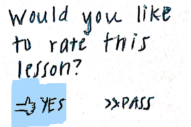 Would you like
to rate this
lesson?
YES >>PASS